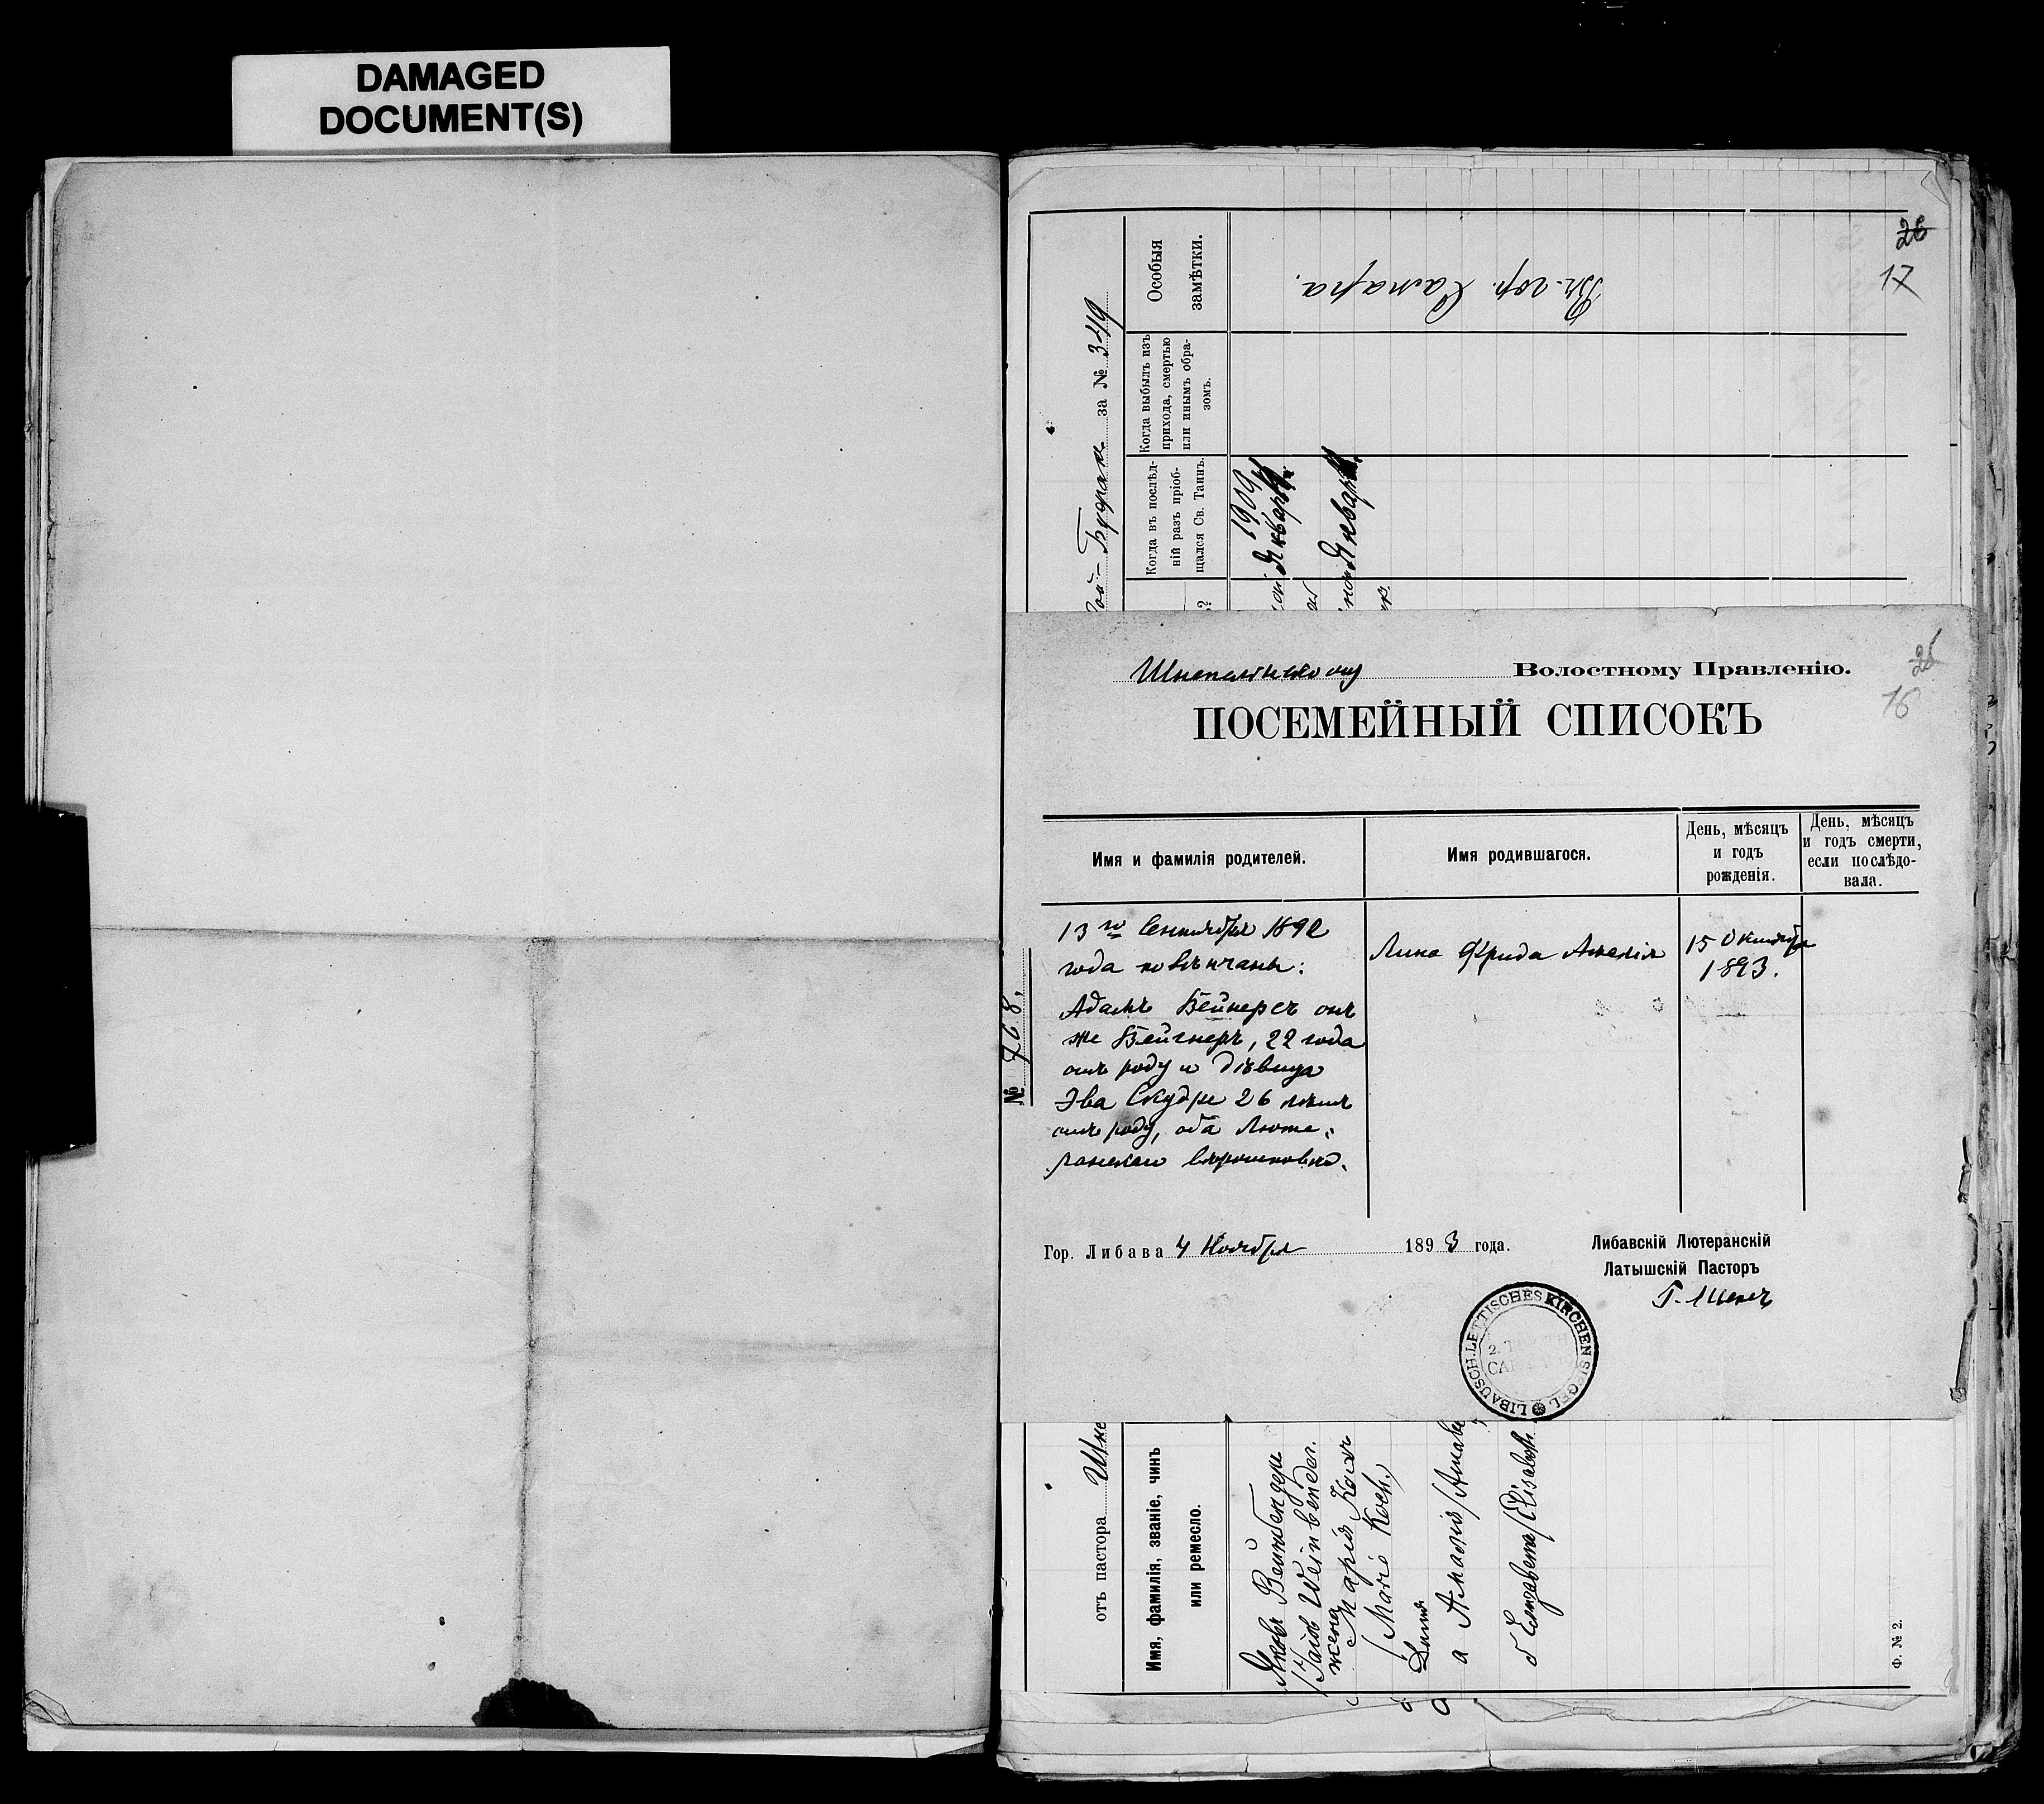 DAMAGED
DOCUMENT(S)
26
17
Особыя
замѣтки.
гор. Самара.
Когда выбылъ изъ
прихода, смертью
или инымъ обра-
зомъ.
Когда въ послѣд-
ній разъ пріоб-
щался Св. Таинъ.
1904
Января
Января
за № 349
Волостному Правленію.
26
16
ПОСЕМЕЙНЫЙ СПИСОКЪ
Имя и фамилія родителей.
Имя родившагося.
День, мѣсяцъ
и годъ
рожденія.
День, мѣсяцъ
и годъ смерти,
если послѣдо-
вала.
№ 768.
13го Сентября 1892
года повѣнчаны:
Адамъ Вейнерсъ онъ
же Вейгнеръ, 22 года
отъ роду и дѣвица
Эва Скудре 26 лѣтъ
отъ роду, оба Люте-
ранскаго вѣроисповѣд.
Лина Фрида Амалія
15 Октября
1893.
Гор. Либава 4 Ноября 1893 года.
Либавскій Лютеранскій
Латышскій Пасторъ
LIBAUSCH.LETTISCHES KIRCHENSIEGEL
отъ пастора
Имя, фамилія, званіе, чинъ
или ремесло.
Яковъ Вейнбендеръ
/Jacob Weinbender.
жена
Марія Кохъ
/Marie Koch/
Дѣти
а Амалія /Amalie
б Елизавета /Elisabeth
Ф. № 2.